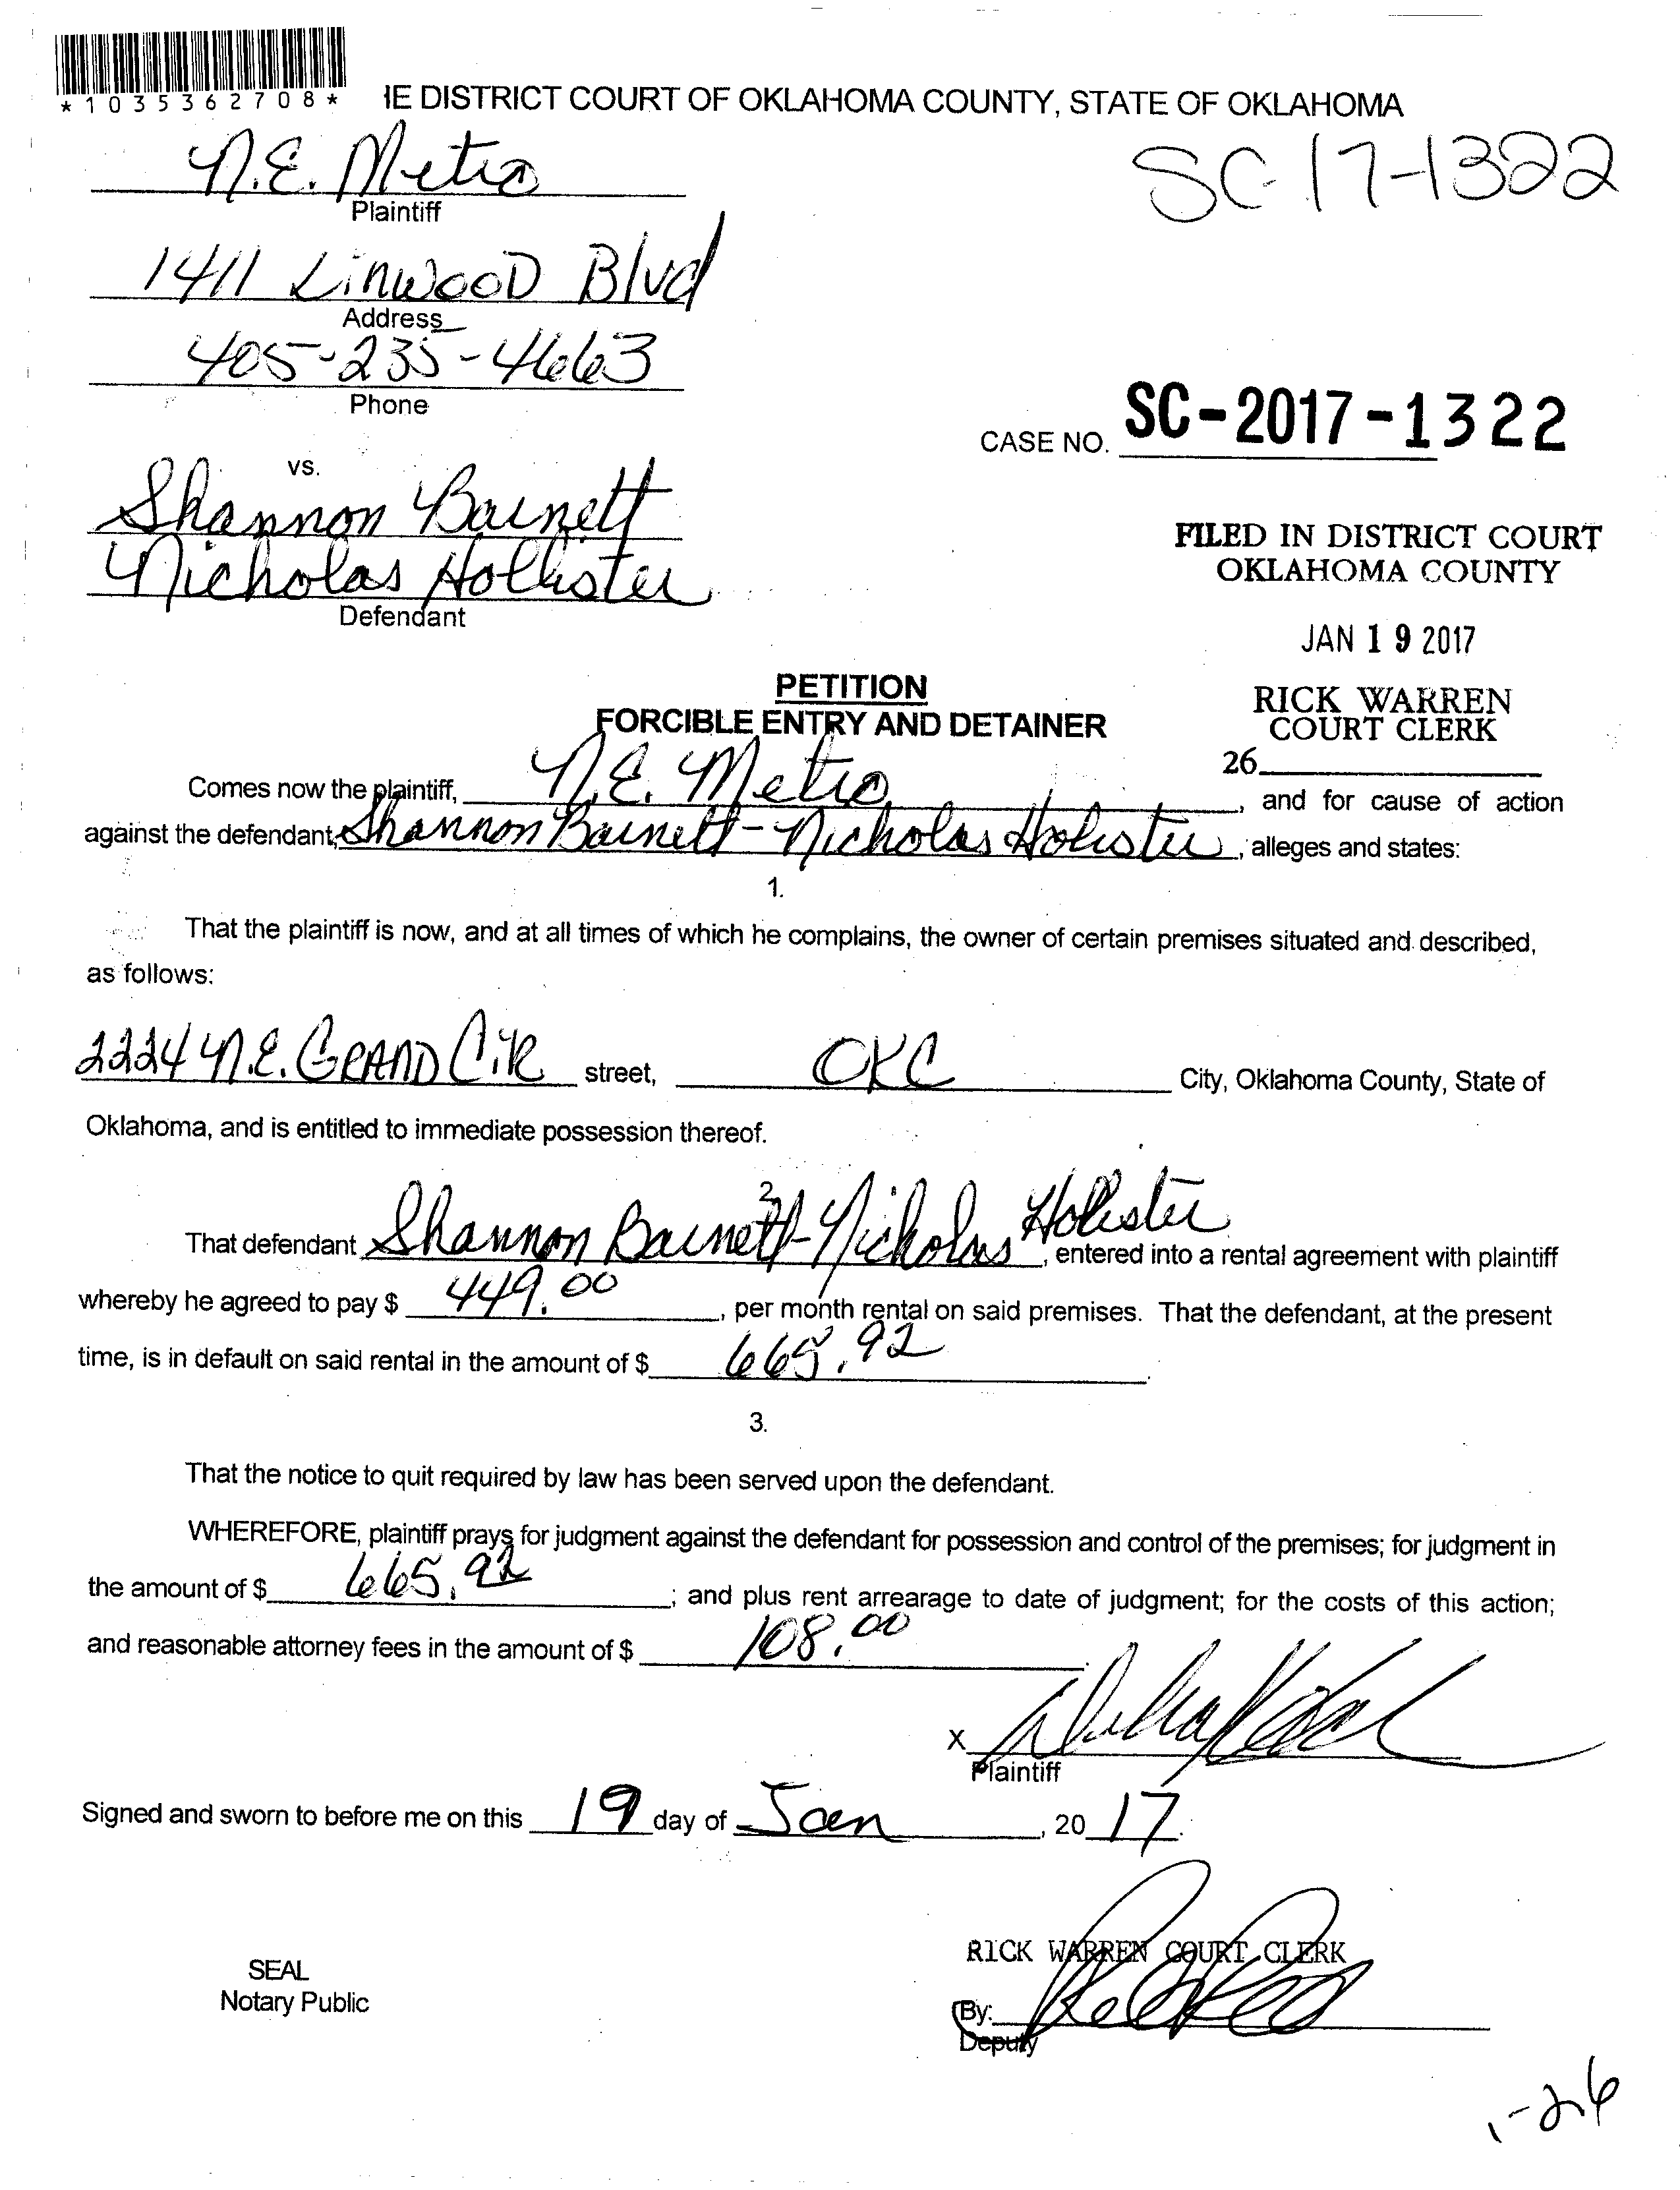 *1035362708*
IE DISTRICT COURT OF OKLAHOMA COUNTY, STATE OF OKLAHOMA
N.E. Metro
SC-17-1322
Plaintiff
1411 LinwooD Blvd
Address
405-235-4663
Phone
CASE NO. SC-2017-1322
vs.
Shannon Barnett
Nicholas Hollister
Defendant
FILED IN DISTRICT COURT
OKLAHOMA COUNTY
JAN 19 2017
RICK WARREN
COURT CLERK
26
PETITION
FORCIBLE ENTRY AND DETAINER
Comes now the plaintiff, N.E. Metro, and for cause of action
against the defendant, Shannon Barnett-Nicholas Holister, alleges and states:
1.
That the plaintiff is now, and at all times of which he complains, the owner of certain premises situated and described,
as follows:
2224 N.E. GRAND CiR street, OKC City, Oklahoma County, State of
Oklahoma, and is entitled to immediate possession thereof.
2.
That defendant Shannon Barnett-Nicholas Hollister, entered into a rental agreement with plaintiff
whereby he agreed to pay $ 449.00, per month rental on said premises. That the defendant, at the present
time, is in default on said rental in the amount of $ 665.92.
3.
That the notice to quit required by law has been served upon the defendant.
WHEREFORE, plaintiff prays for judgment against the defendant for possession and control of the premises; for judgment in
the amount of $ 665.92; and plus rent arrearage to date of judgment; for the costs of this action;
and reasonable attorney fees in the amount of $ 108.00.
X
Plaintiff
Signed and sworn to before me on this 19 day of Jan, 2017.
RICK WARREN COURT CLERK
SEAL
Notary Public
By:
Deputy
1-26